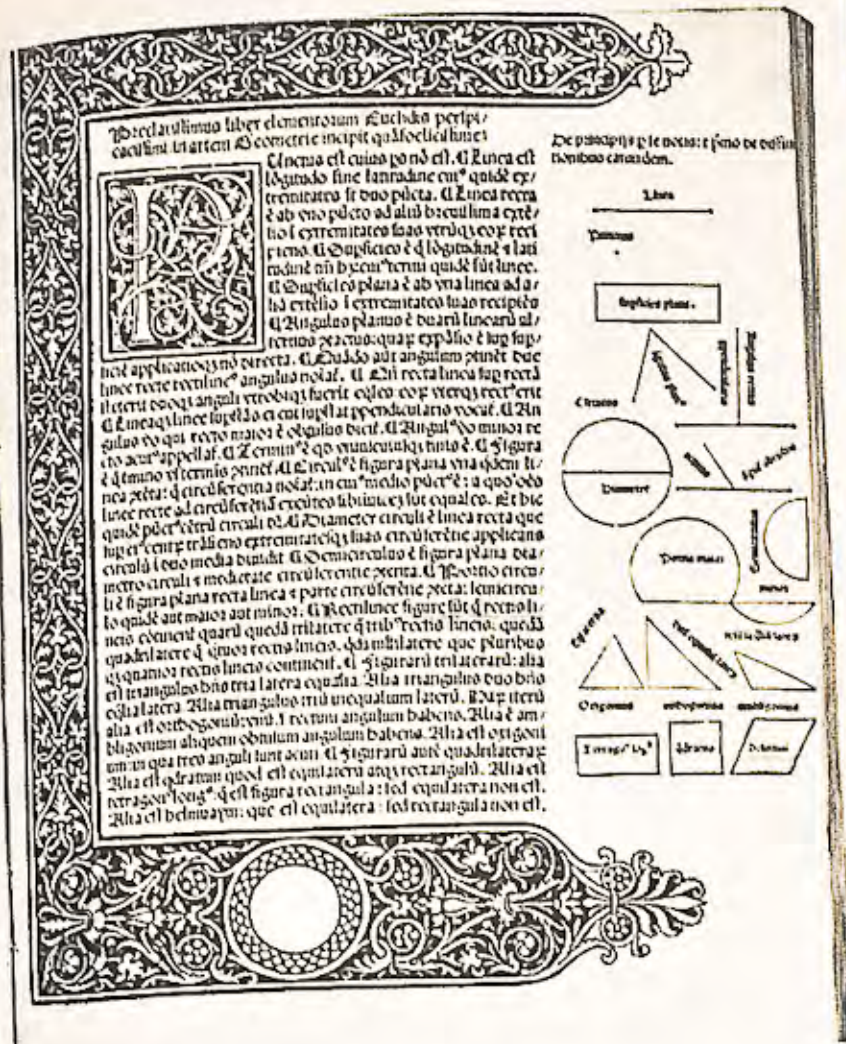 Preclarissimus liber elementorum Euclidis perspi/
cacissimi: in artem Geometrie incipit quāfoelicissime:
Unctus est cuius ps nō est. ¶ Linea est
lōgitudo sine latitudine cuiꝰ quidē ex/
tremitates sūt duo pūcta. ¶ Linea recta
ē ab vno pūcto ad aliū breuissima extē/
sio ī extremitates suas vtrūqꝫ eoꝝ reci
piens. ¶ Supficies ē q̄ lōgitudinē ⁊ lati
tudinē tm̄ hꝫ: cuiꝰ termi quidē sūt linee.
¶ Supficies plana ē ab vna linea ad a/
liā extēsio ī extremitates suas recipiēs
¶ Angulus planus ē duarū linearū al/
ternus ꝯtactus: quaꝝ expāsio ē sup sup/
ficiē applicatioqꝫ nō directa. ¶ Quādo aūt angulum ꝯtinēt due
linee recte rectilineꝰ angulus noīaf. ¶ Qn̄ recta linea sup rectā
steterit duoqꝫ anguli vtrobiqꝫ fuerit eq̄les: eoꝝ vterqꝫ rectꝰ erit
¶ Lineaqꝫ linee supstās ei cui supstat ppendicularis vocaf. ¶ An
gulus vo qui recto maior ē obtusus dicif. ¶ Angulꝰ vo minor re
cto acutꝰ appellaf. ¶ Terminꝰ ē qd vniuscuiusqꝫ finis ē. ¶ Figura
ē q̄ tmino vl terminis ꝯtinef. ¶ Circulꝰ ē figura plana vna q̄dem li/
nea ꝯtēta: q̄ circūferentia noīaf: in cuiꝰ medio pūctꝰ ē: a quo oēs
linee recte ad circūferētiā exeūtes sibiinuicē sūt equales. Et hic
quidē pūctꝰ cētrū circuli dꝫ. ¶ Diameter circuli ē linea recta que
sup eiꝰ centꝝ trāsiens extremitatesqꝫ suas circūferētie applicans
circulū ī duo media diuidit. ¶ Semicirculus ē figura plana dia/
metro circuli ⁊ medietate circūferentie ꝯtenta. ¶ Portio circu/
li ē figura plana recta linea ⁊ parte circūferētie ꝯtēta: semicircu/
lo quidē aut maior aut minor. ¶ Rectilinee figure sūt q̄ rectis li/
neis cōtinent quarū quedā trilatere q̄ tribꝰ rectis lineis: quedā
quadrilatere q̄ q̄tuor rectis lineis. q̄dā mltilatere que pluribus
qꝫ quatuor rectis lineis continent. ¶ Figurarū trilaterarū: alia
est triangulus hn̄s tria latera equalia. Alia triangulus duo hn̄s
eq̄lia latera. Alia triangulus triū inequalium laterū. Haꝝ iterū
alia est orthogoniū: vnū. s. rectum angulum habens. Alia ē am/
bligonium aliquem obtusum angulum habens. Alia est oxigoni
um: in qua tres anguli sunt acuti. ¶ Figurarū autē quadrilateraꝝ
Alia est q̄dratum quod est equilaterū atqꝫ rectangulū. Alia est
tetragonꝰ longꝰ: q̄ est figura rectangula: sed equilatera non est.
Alia est helmuaym: que est equilatera: sed rectangula non est.
De principijs p se notis: ⁊ pmo de diffini
tionibus earundem.
Linea
Punctus
Supficies plana.
Circulus
Diameter
Portio maior